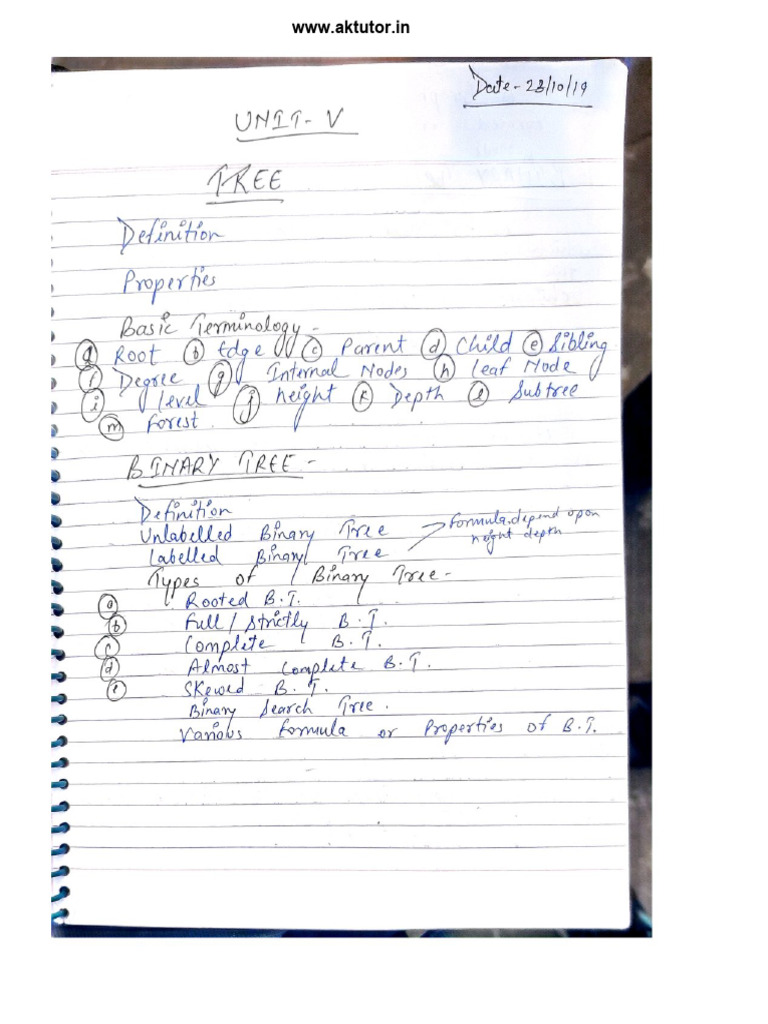 www.aktutor.in
Date - 23/10/19
UNIT - V
TREE
Definition
Properties
Basic Terminology -
(a) Root (b) Edge (c) Parent (d) Child (e) Sibling
(f) Degree (g) Internal Nodes (h) Leaf Node
(i) level (j) height (k) Depth (l) Subtree
(m) Forest.
BINARY TREE -
Definition
Unlabelled Binary Tree
Labelled Binary Tree
formula depend upon
height depth
Types of Binary Tree -
(a) Rooted B.T.
(b) Full / Strictly B.T.
(c) Complete B.T.
(d) Almost Complete B.T.
(e) Skewed B.T.
Binary Search Tree.
Various formula or Properties of B.T.